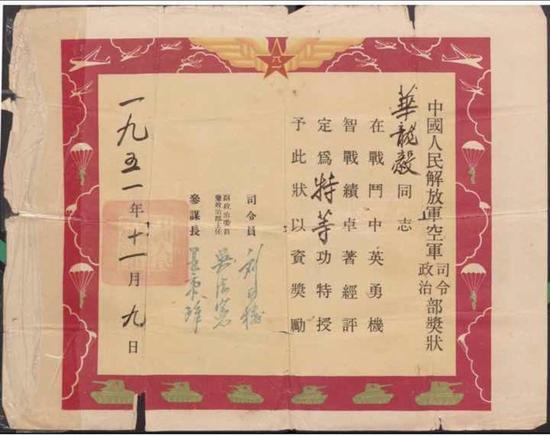 八一
中國人民解放軍空軍司令政治部獎狀
華龍毅同志
在戰鬥中英勇機
智戰績卓著經評
定爲特等功特授
予此狀以資獎勵
司令員 刘亞樓
副政治委員兼政治部主任 吳法憲
參謀長 王秉璋
一九五一年十一月九日